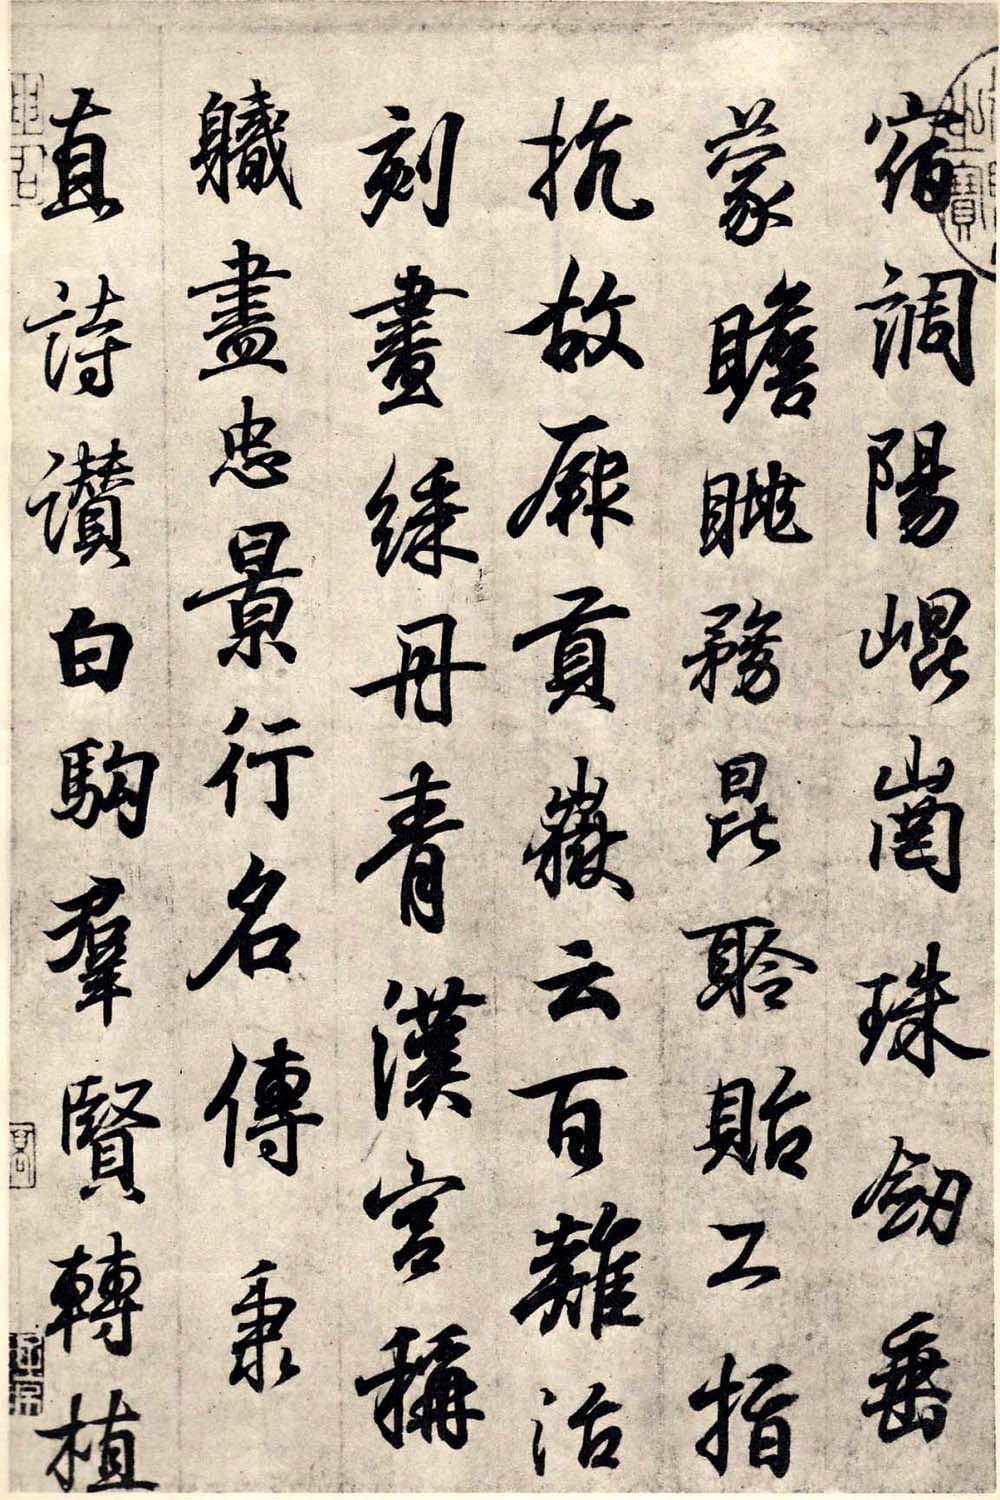 宿調陽崐崗珠劔垂
蒙瞻眺務昆聆貽工指
抗故厥貢嶽云百難治
刻畫綵丹青漢宮稱
軄盡忠景行名傳秉
直詩讚白駒羣賢轉植